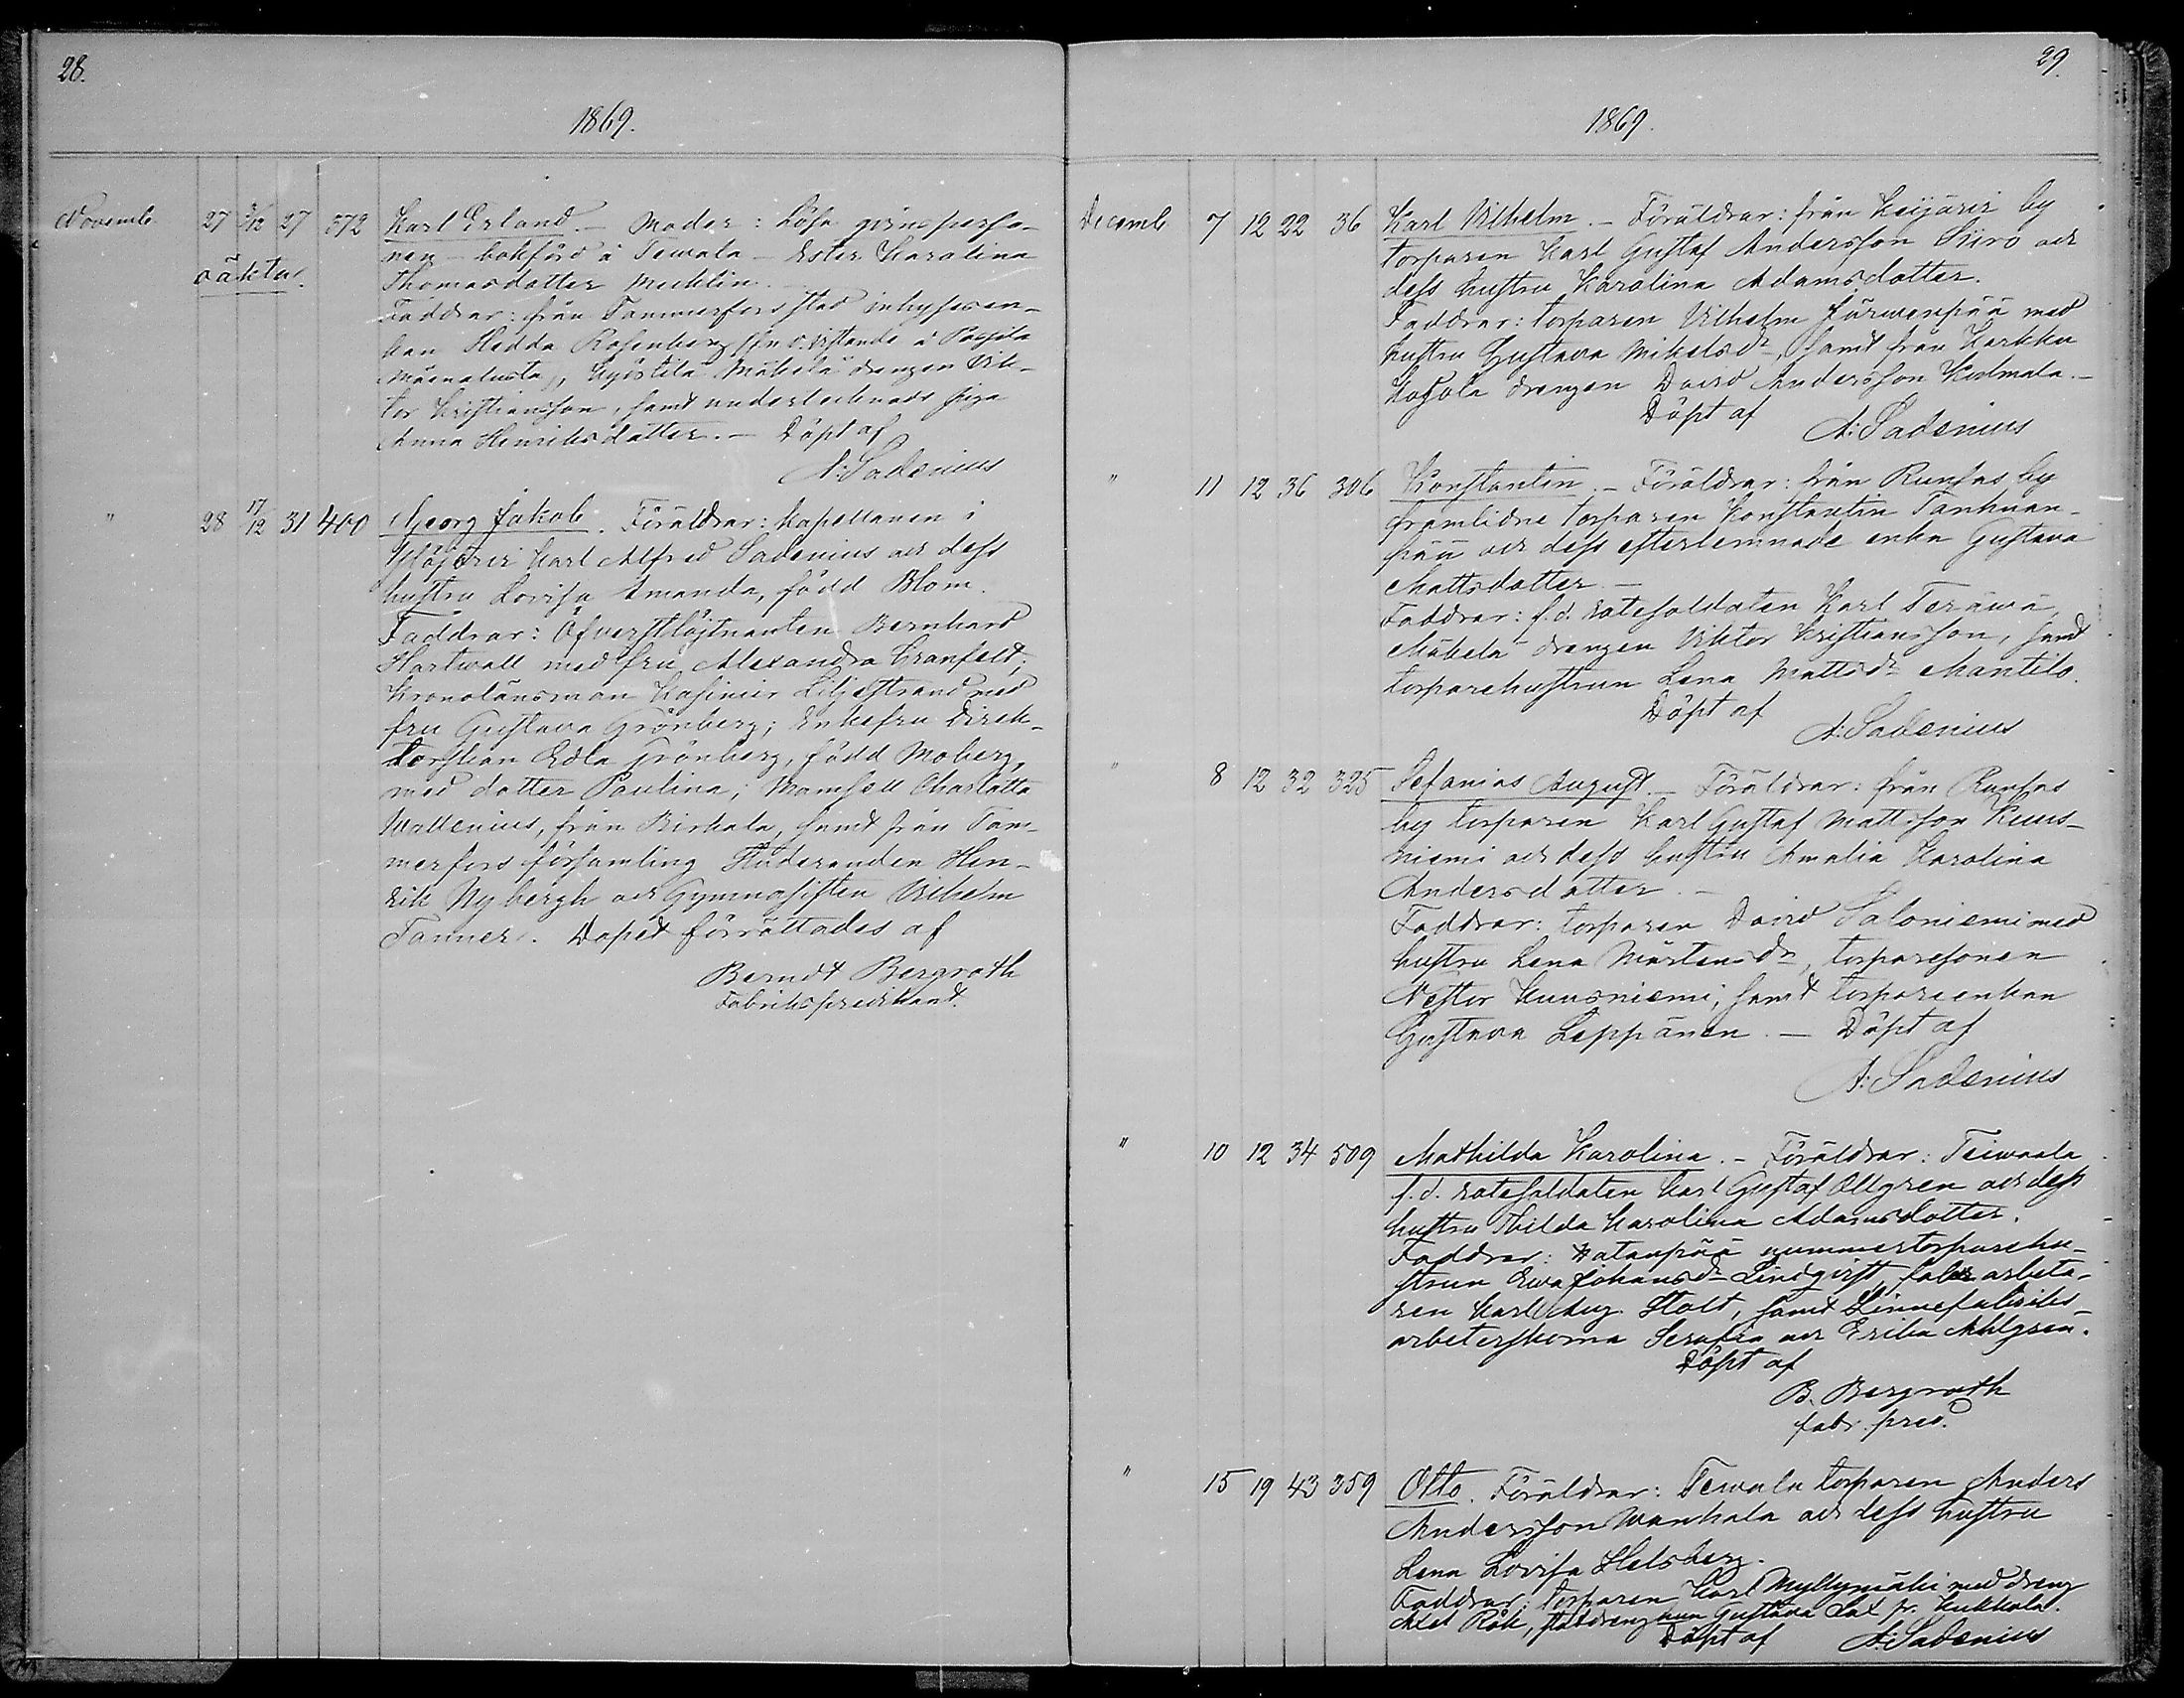 28.
1869.
Novemb. 27 3/12 27 372 Karl Erland. — Moder: Lösa qvinsperso-
nen - bokförd i Teiwala - Ester Karolina
oäkta. Thomasdotter Mecklin. —
Faddrar: från Tammerfors stad inhyses en-
kan Hedda Rosenberg
Mäkelä drengen Vik-
tor Kristiansson, samt undertecknads piga
Anna Henriksdotter. — Döpt af
A: Sadenius
" 28 17/12 31 400 Georg Jakob. Föräldrar: Kapellanen i
Ylöjärvi Karl Alfred Sadenius och dess
hustru Lovisa Amanda, född Blom.
Faddrar: Öfverstlöjtnanten Bernhard
Hartwall med fru Alexandra Granfelt;
Kronolänsman Kasimir Liljestrand med
fru Gustava Grönberg; Enkefru Direk-
torskan Edla Grönberg, född Moberg,
med dotter Paulina; Mamsell Charlotta
Wallenius, från Birkala, samt från Tam-
merfors församling Studeranden Hen-
rik Nybergh och Gymnasisten Vilhelm
Tanner. Dopet förrättades af
Berndt Bergroth
Fabrikspredikant.
29.
1869.
Decemb 7 12 22 36 Karl Vilhelm. — Föräldrar: från Keijärvi by
torparen Karl Gustaf Andersson Siiro och
dess hustru Karolina Adamsdotter.
Faddrar: torparen Vilhelm Järvenpää med
hustru Gustava Mikelsdr, samt från Karkku
drengen David Andersson Kulmala. —
Döpt af
A: Sadenius
" 11 12 36 306 Konstantin. — Föräldrar: från Runsas by
framlidne torparen Konstantin Tanhuan-
pää och dess efterlemnade enka Gustava
Mattsdotter. —
Faddrar: f.d. rotesoldaten Karl Teräwä,
Mäkelä drengen Viktor Kristiansson, samt
torparehustrun Lena Mattsdr Mantila.
Döpt af
A: Sadenius
" 8 12 32 325 Sefanias August. — Föräldrar: från Runsas
by torparen Karl Gustaf Mattsson Kuus-
niemi och dess hustru Amalia Karolina
Andersdotter. —
Faddrar: torparen David Saloniemi med
hustru Lena Mårtensdr, torparesonen
Nestor Kuusniemi, samt torpareenkan
Gustava Leppänen. — Döpt af
A: Sadenius
" 10 12 34 509 Mathilda Karolina. — Föräldrar: Teiwaala
f.d. rotesoldaten Karl Gustaf Allgren och dess
hustru Thilda Karolina Adamsdotter.
Faddrar: Hatanpää nummertorparehu-
strun Eva Johansdr Lindqvist, fabr arbeta-
ren Karl Aug. Stolt, samt Linnefabriks-
arbeterskorna Serafia och Erika Ahlgren.
Döpt af
B. Bergroth
fabr. pred.
" 15 19 43 359 Otto. Föräldrar: Teiwala torparen Anders
Andersson Wanhala och dess hustru
Lena Lovisa Helsberg.
Faddrar: torparen Karl Myllymäki med dreng
Axel Rök, Gustava Lax fr. Kukkola.
Döpt af A: Sadenius